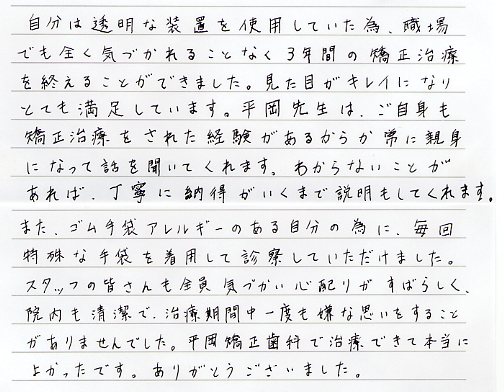 自分は透明な装置を使用していた為、職場
でも全く気づかれることなく3年間の矯正治療
を終えることができました。見た目がキレイになり
とても満足しています。平岡先生は、ご自身も
矯正治療をされた経験があるからか常に親身
になって話を聞いてくれます。わからないことが
あれば、丁寧に納得がいくまで説明もしてくれます。
また、ゴム手袋アレルギーのある自分の為に、毎回
特殊な手袋を着用して診察していただけました。
スタッフの皆さんも全員気づかい心配りがすばらしく、
院内も清潔で、治療期間中一度も嫌な思いをすること
がありませんでした。平岡矯正歯科で治療できて本当に
よかったです。ありがとうございました。